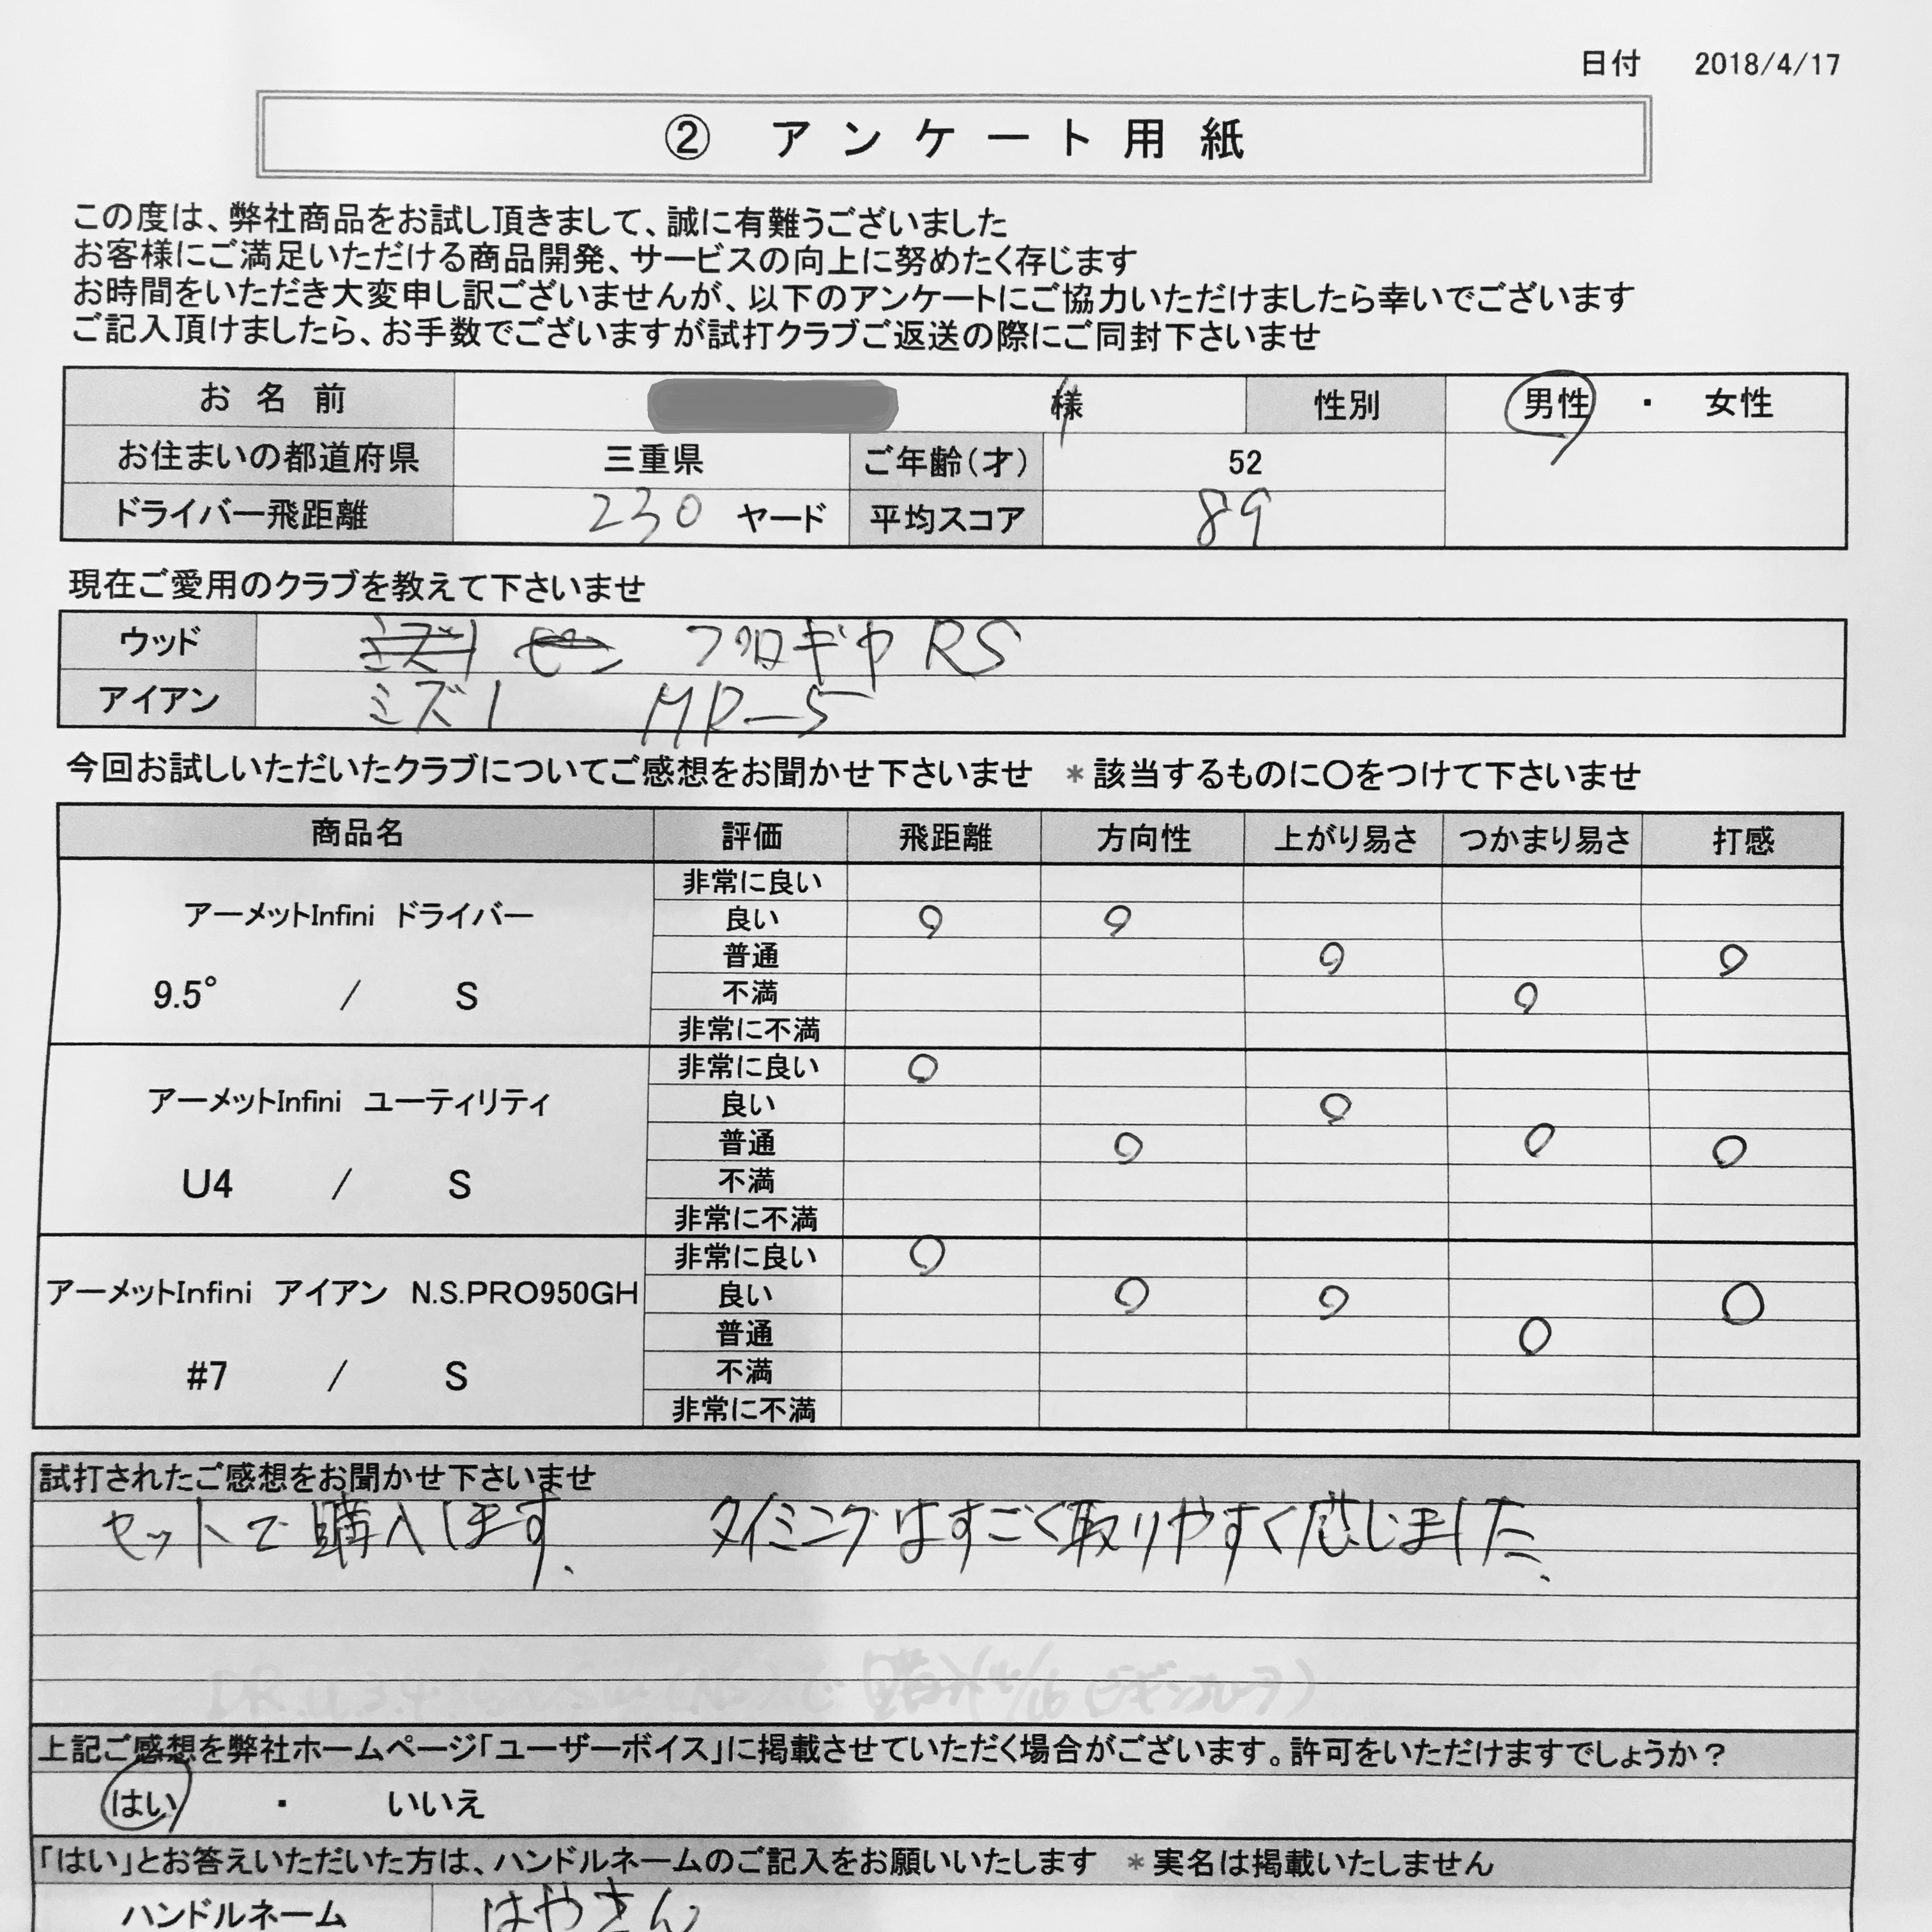 日付 2018/4/17
② アンケート用紙
この度は、弊社商品をお試し頂きまして、誠に有難うございました
お客様にご満足いただける商品開発、サービスの向上に努めたく存じます
お時間をいただき大変申し訳ございませんが、以下のアンケートにご協力いただけましたら幸いでございます
ご記入頂けましたら、お手数でございますが試打クラブご返送の際にご同封下さいませ
お名前 様 性別 男性 ・ 女性
お住まいの都道府県 三重県 ご年齢(才) 52
ドライバー飛距離 230 ヤード 平均スコア 89
現在ご愛用のクラブを教えて下さいませ
ウッド RS
アイアン ミズノ MP-5
今回お試しいただいたクラブについてご感想をお聞かせ下さいませ *該当するものに〇をつけて下さいませ
商品名 評価 飛距離 方向性 上がり易さ つかまり易さ 打感
アーメットInfini ドライバー
9.5° / S
非常に良い
良い 〇 〇
普通 〇 〇
不満 〇
非常に不満
アーメットInfini ユーティリティ
U4 / S
非常に良い 〇
良い 〇
普通 〇 〇 〇
不満
非常に不満
アーメットInfini アイアン N.S.PRO950GH
#7 / S
非常に良い 〇
良い 〇 〇 〇
普通 〇
不満
非常に不満
試打されたご感想をお聞かせ下さいませ
セットで購入します、 タイミングはすごく取りやすく感じました、
上記ご感想を弊社ホームページ「ユーザーボイス」に掲載させていただく場合がございます。許可をいただけますでしょうか?
はい ・ いいえ
「はい」とお答えいただいた方は、ハンドルネームのご記入をお願いいたします *実名は掲載いたしません
ハンドルネーム はやさん